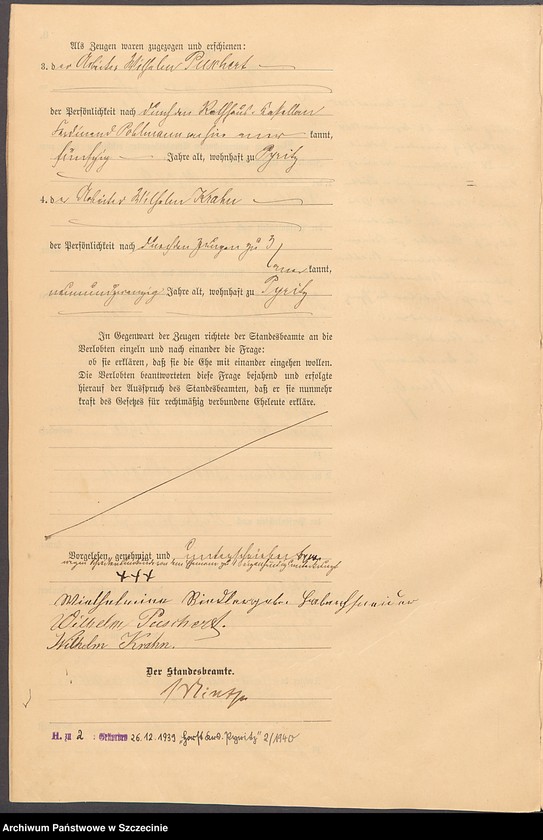 Als Zeugen waren zugezogen und erschienen:
3. der Arbeiter Wilhelm Puschert
der Persönlichkeit nach durch den Rathaus-Kastellan
Ferdinand Pohlmann kannt,
fünfzig Jahre alt, wohnhaft zu Pyritz
4. der Arbeiter Wilhelm Krahn
der Persönlichkeit nach durch den Zeugen zu 3
aner kannt,
neunundzwanzig Jahre alt, wohnhaft zu Pyritz
In Gegenwart der Zeugen richtete der Standesbeamte an die
Verlobten einzeln und nach einander die Frage:
ob sie erklären, daß sie die Ehe mit einander eingehen wollen.
Die Verlobten beantworteten diese Frage bejahend und erfolgte
hierauf der Ausspruch des Standesbeamten, daß er sie nunmehr
kraft des Gesetzes für rechtmäßig verbundene Eheleute erkläre.
Vorgelesen, genehmigt und unterschrieben bzw.
+++
Wielhelmine geb. Habenschneider
Wilhelm Puschert.
Wilhelm Krahn.
Der Standesbeamte.
H. zu 2 : Geboren 26.12.1939 Pyritz" 2/1940
Archiwum Państwowe w Szczecinie